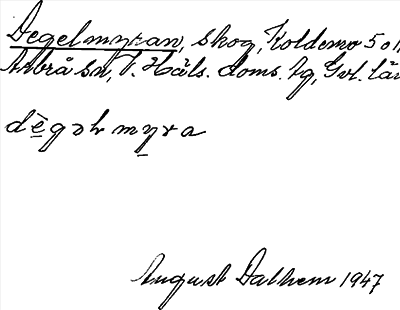 Degelmyran, skog, Koldemo 5 o
Arbrå sn, V. Häls. doms. tg, Gvl. län
dègəlmyra
August Dalhem 1947